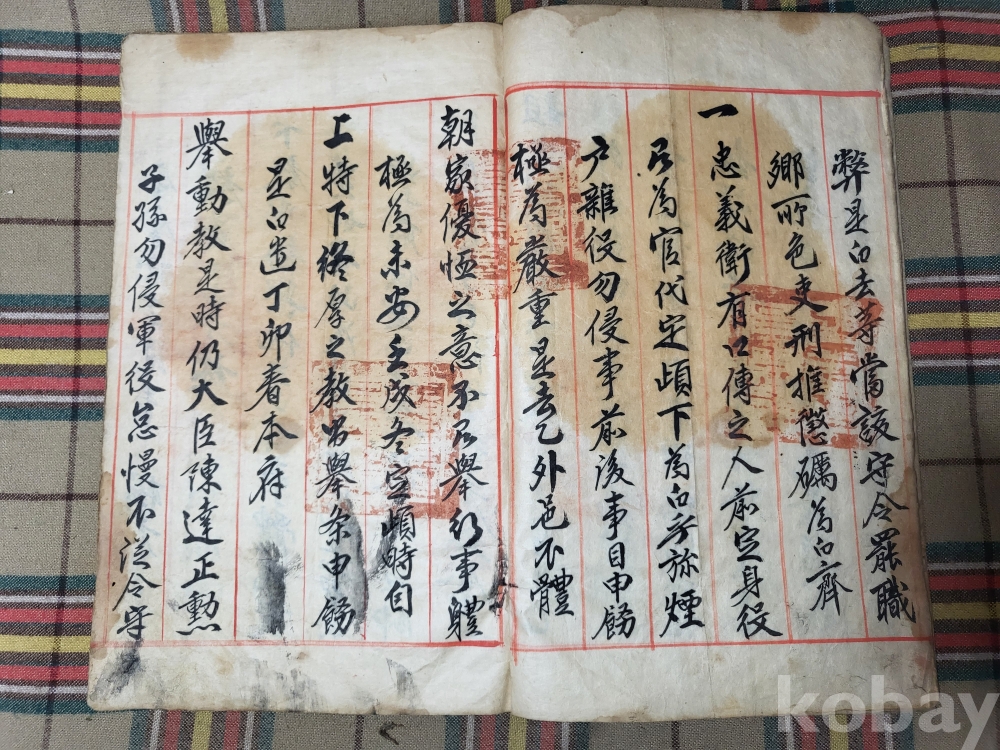 弊是白去等當該守令罷職
鄕所色吏刑推懲礪爲白齊
一忠義衛有口傳之人前定身役
以爲官代定頉下爲白乎旀煙
户雜役勿侵事前後事目申飭
極爲嚴重是去乙外邑不體
朝家優恤之意不以擧行事體
極爲未安壬戌冬定頉時自
上特下終厚之教另舉条申飭
是白遣丁卯春本府
舉動教是時仍大臣陳達正勳
子孫勿侵軍役怠慢不從令守
kobay